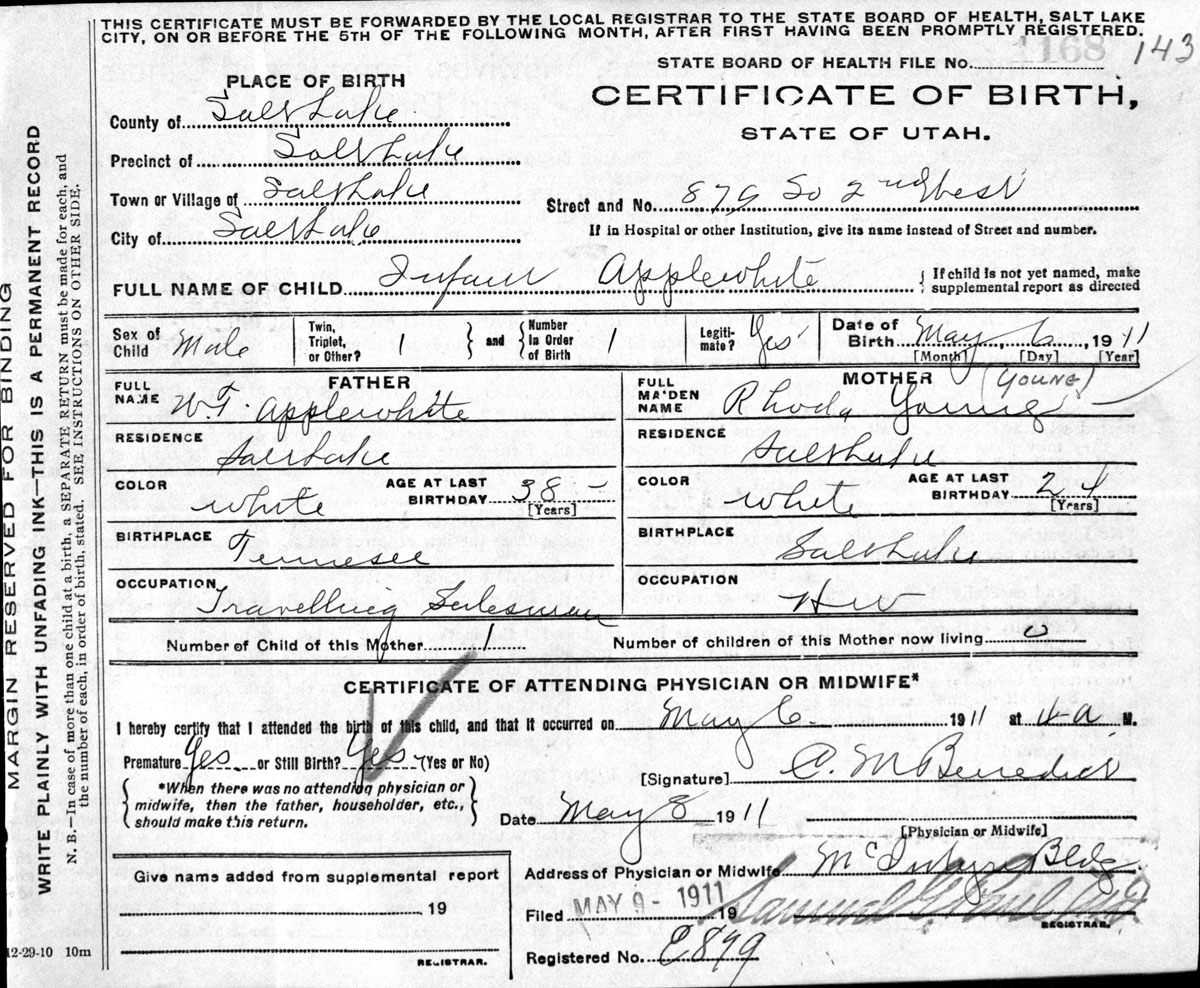 THIS CERTIFICATE MUST BE FORWARDED BY THE LOCAL REGISTRAR TO THE STATE BOARD OF HEALTH, SALT LAKE
CITY, ON OR BEFORE THE 5TH OF THE FOLLOWING MONTH, AFTER FIRST HAVING BEEN PROMPTLY REGISTERED.
143
STATE BOARD OF HEALTH FILE No. 1168
PLACE OF BIRTH
CERTIFICATE OF BIRTH,
STATE OF UTAH.
County of Salt Lake
Precinct of Salt Lake
Town or Village of Salt Lake
Street and No. 879 So 2nd West
City of Salt Lake
If in Hospital or other Institution, give its name instead of Street and number.
FULL NAME OF CHILD Infant Applewhite { If child is not yet named, make
supplemental report as directed
Sex of Child Male
Twin, Triplet, or Other? 1 } and { Number in Order of Birth 1
Legiti-mate? Yes
Date of Birth May 6 1911
[Month] [Day] [Year]
FATHER
FULL NAME W.T. Applewhite
RESIDENCE Salt Lake
COLOR White
AGE AT LAST BIRTHDAY 38 -
[Years]
BIRTHPLACE Tennesee
OCCUPATION Travelling Salesman
MOTHER (YOUNG)
FULL MAIDEN NAME Rhoda Young
RESIDENCE Salt Lake
COLOR White
AGE AT LAST BIRTHDAY 24
[Years]
BIRTHPLACE Salt Lake
OCCUPATION HW
Number of Child of this Mother 1
Number of children of this Mother now living 0
CERTIFICATE OF ATTENDING PHYSICIAN OR MIDWIFE*
I hereby certify that I attended the birth of this child, and that it occurred on May 6. 1911 at 4 a M.
Premature Yes or Still Birth? Yes (Yes or No)
[Signature] C. M Benedict
{ *When there was no attending physician or
midwife, then the father, householder, etc.,
should make this return. }
Date May 8 1911
[Physician or Midwife]
Address of Physician or Midwife McIntyre Bldg
Give name added from supplemental report
, 19
REGISTRAR.
Filed MAY 9 - 1911 19
REGISTRAR.
Registered No. E899
12-29-10 10m
MARGIN RESERVED FOR BINDING
WRITE PLAINLY WITH UNFADING INK—THIS IS A PERMANENT RECORD
N. B.—In case of more than one child at a birth, a SEPARATE RETURN must be made for each, and
the number of each, in order of birth, stated. SEE INSTRUCTIONS ON OTHER SIDE.